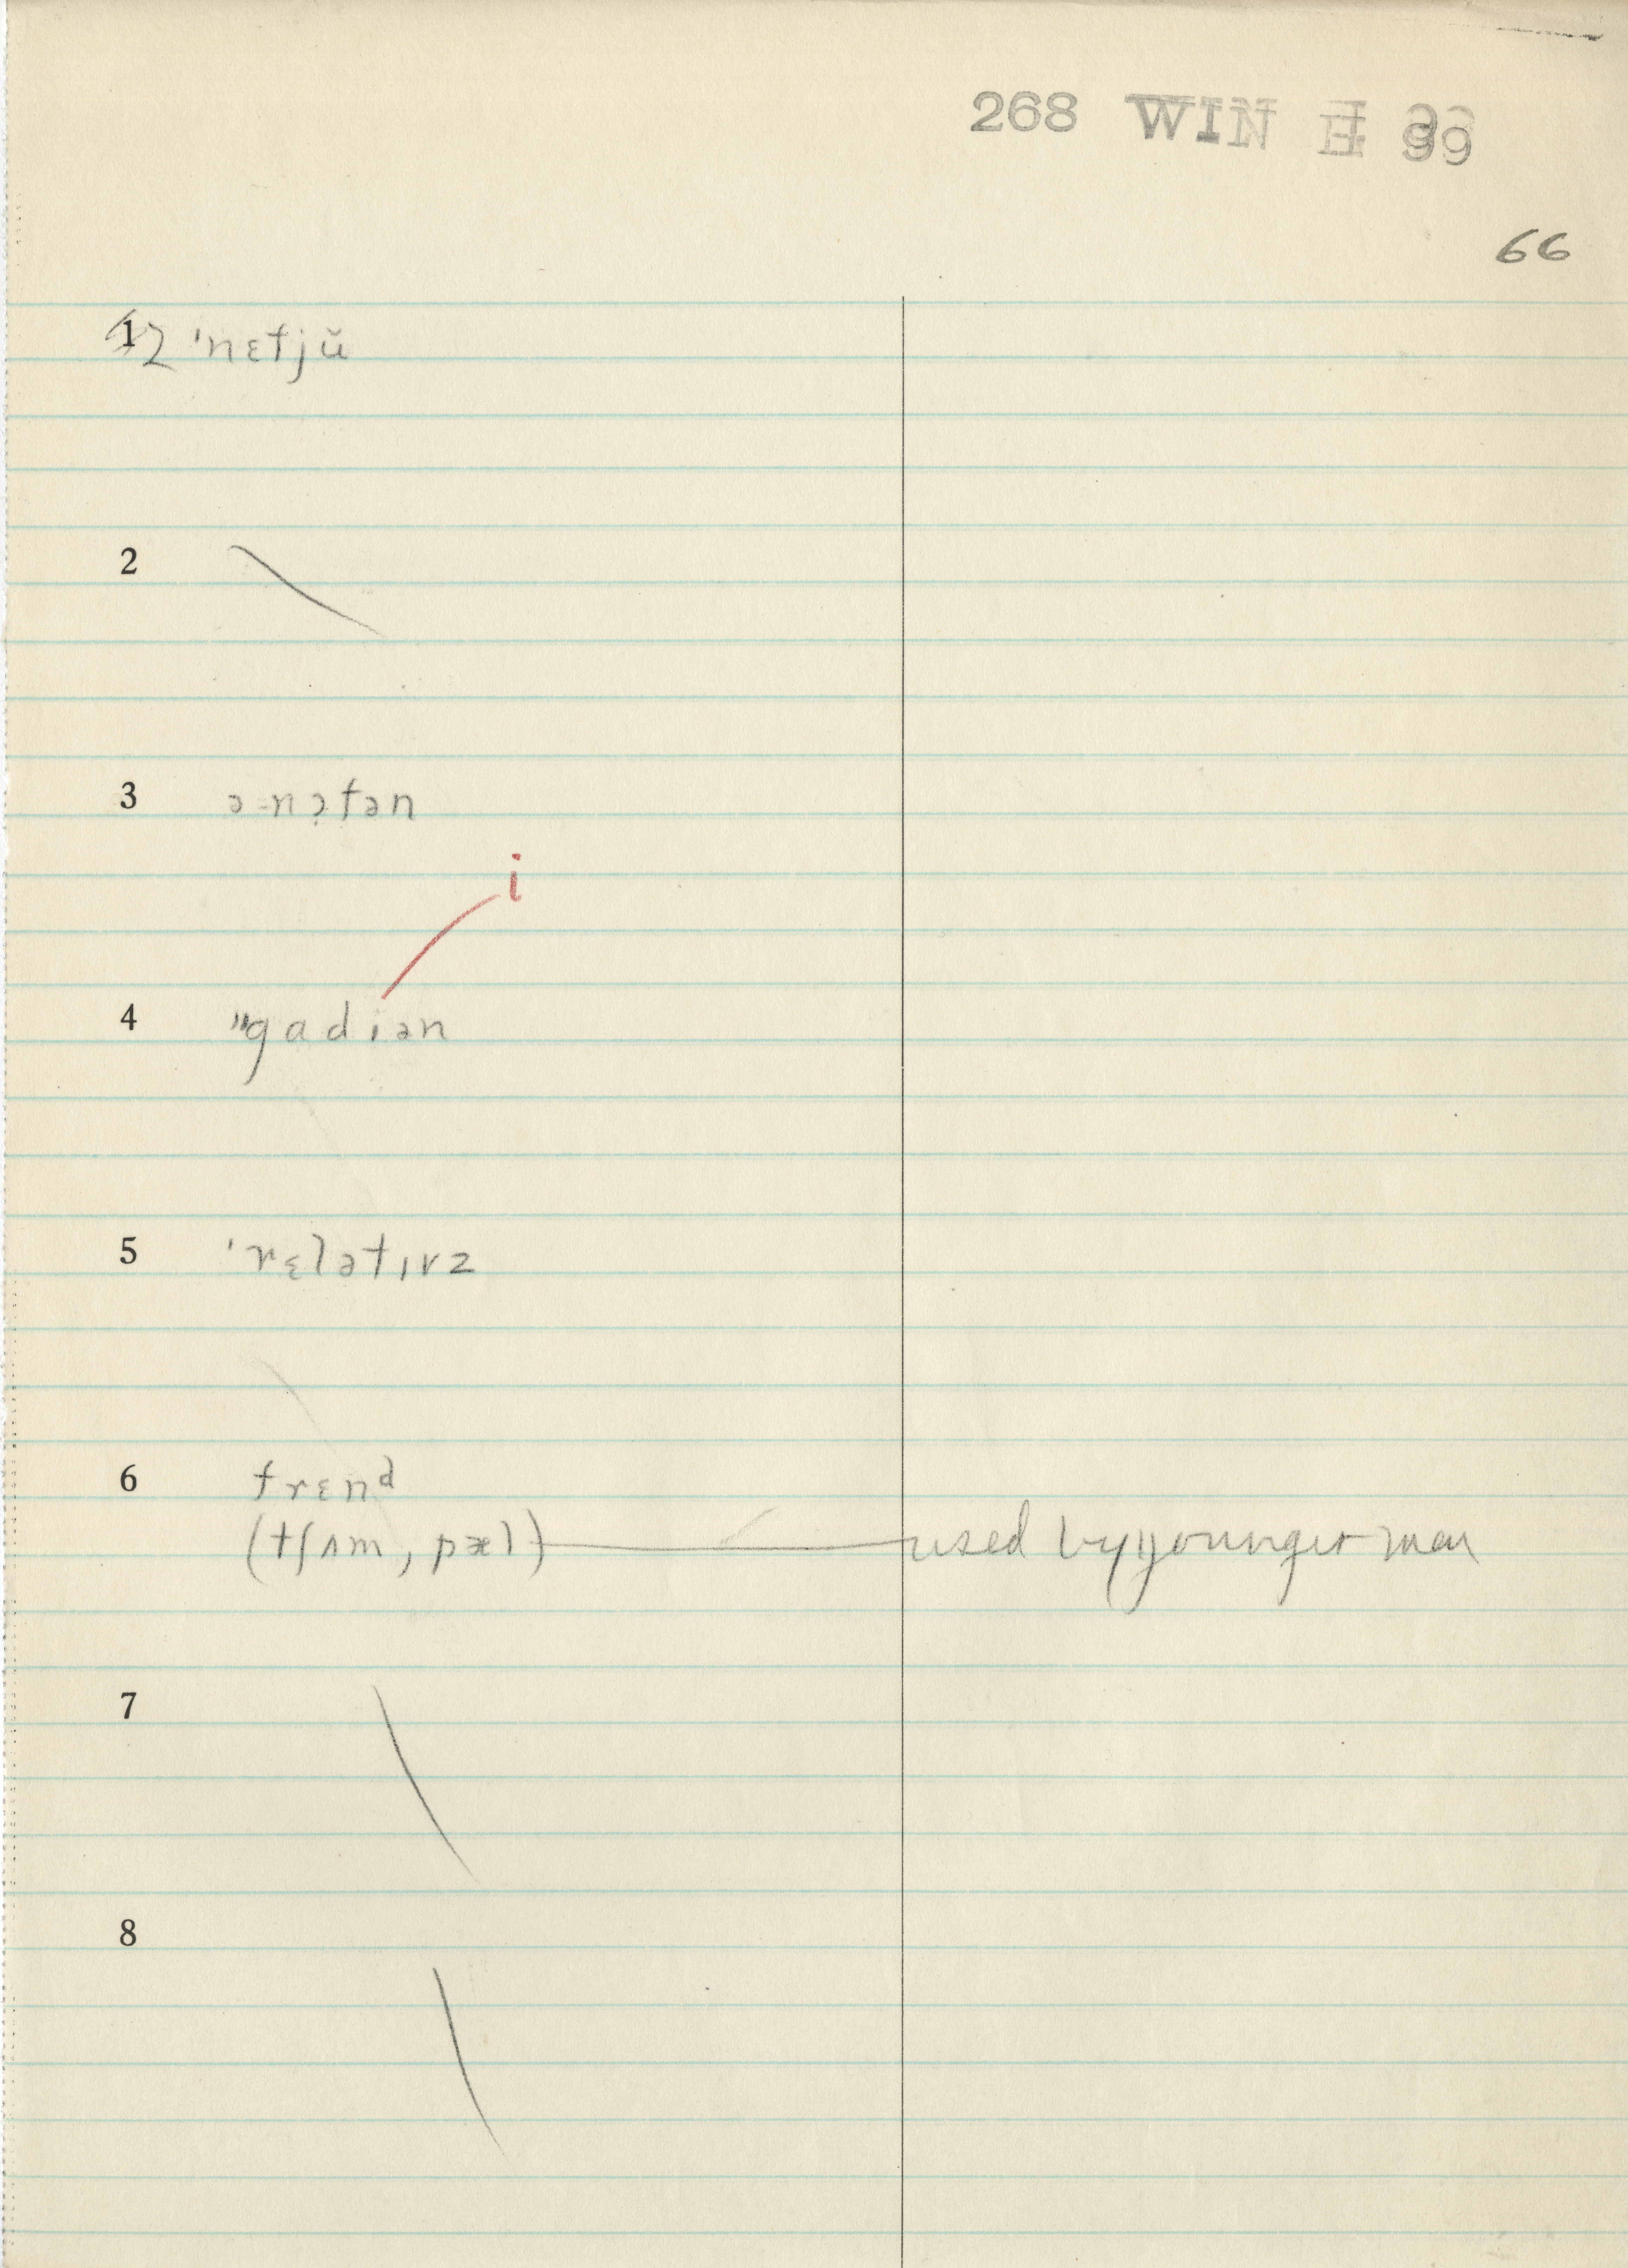 268 WIN E 99
66
1 2 ˈnɛtjŭ
2
3 ə nɔ̣fən
i
4 "gadiən
5 ˈrɛlətɪvz
6 frɛnᵈ
(tʃʌm, pæl) used by younger man
7
8